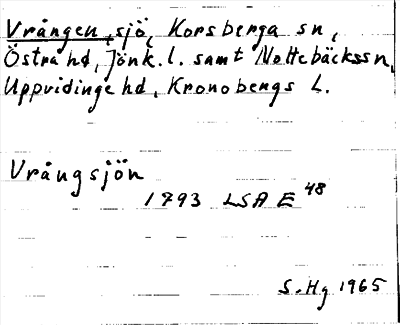 Vrången, sjö, Korsberga sn,
Östra hd, Jönk. l. samt Nottebäcks sn,
Uppvidinge hd, Kronobergs L.
Vrångsjön
1793 LSA E 48
S. Hg 1965